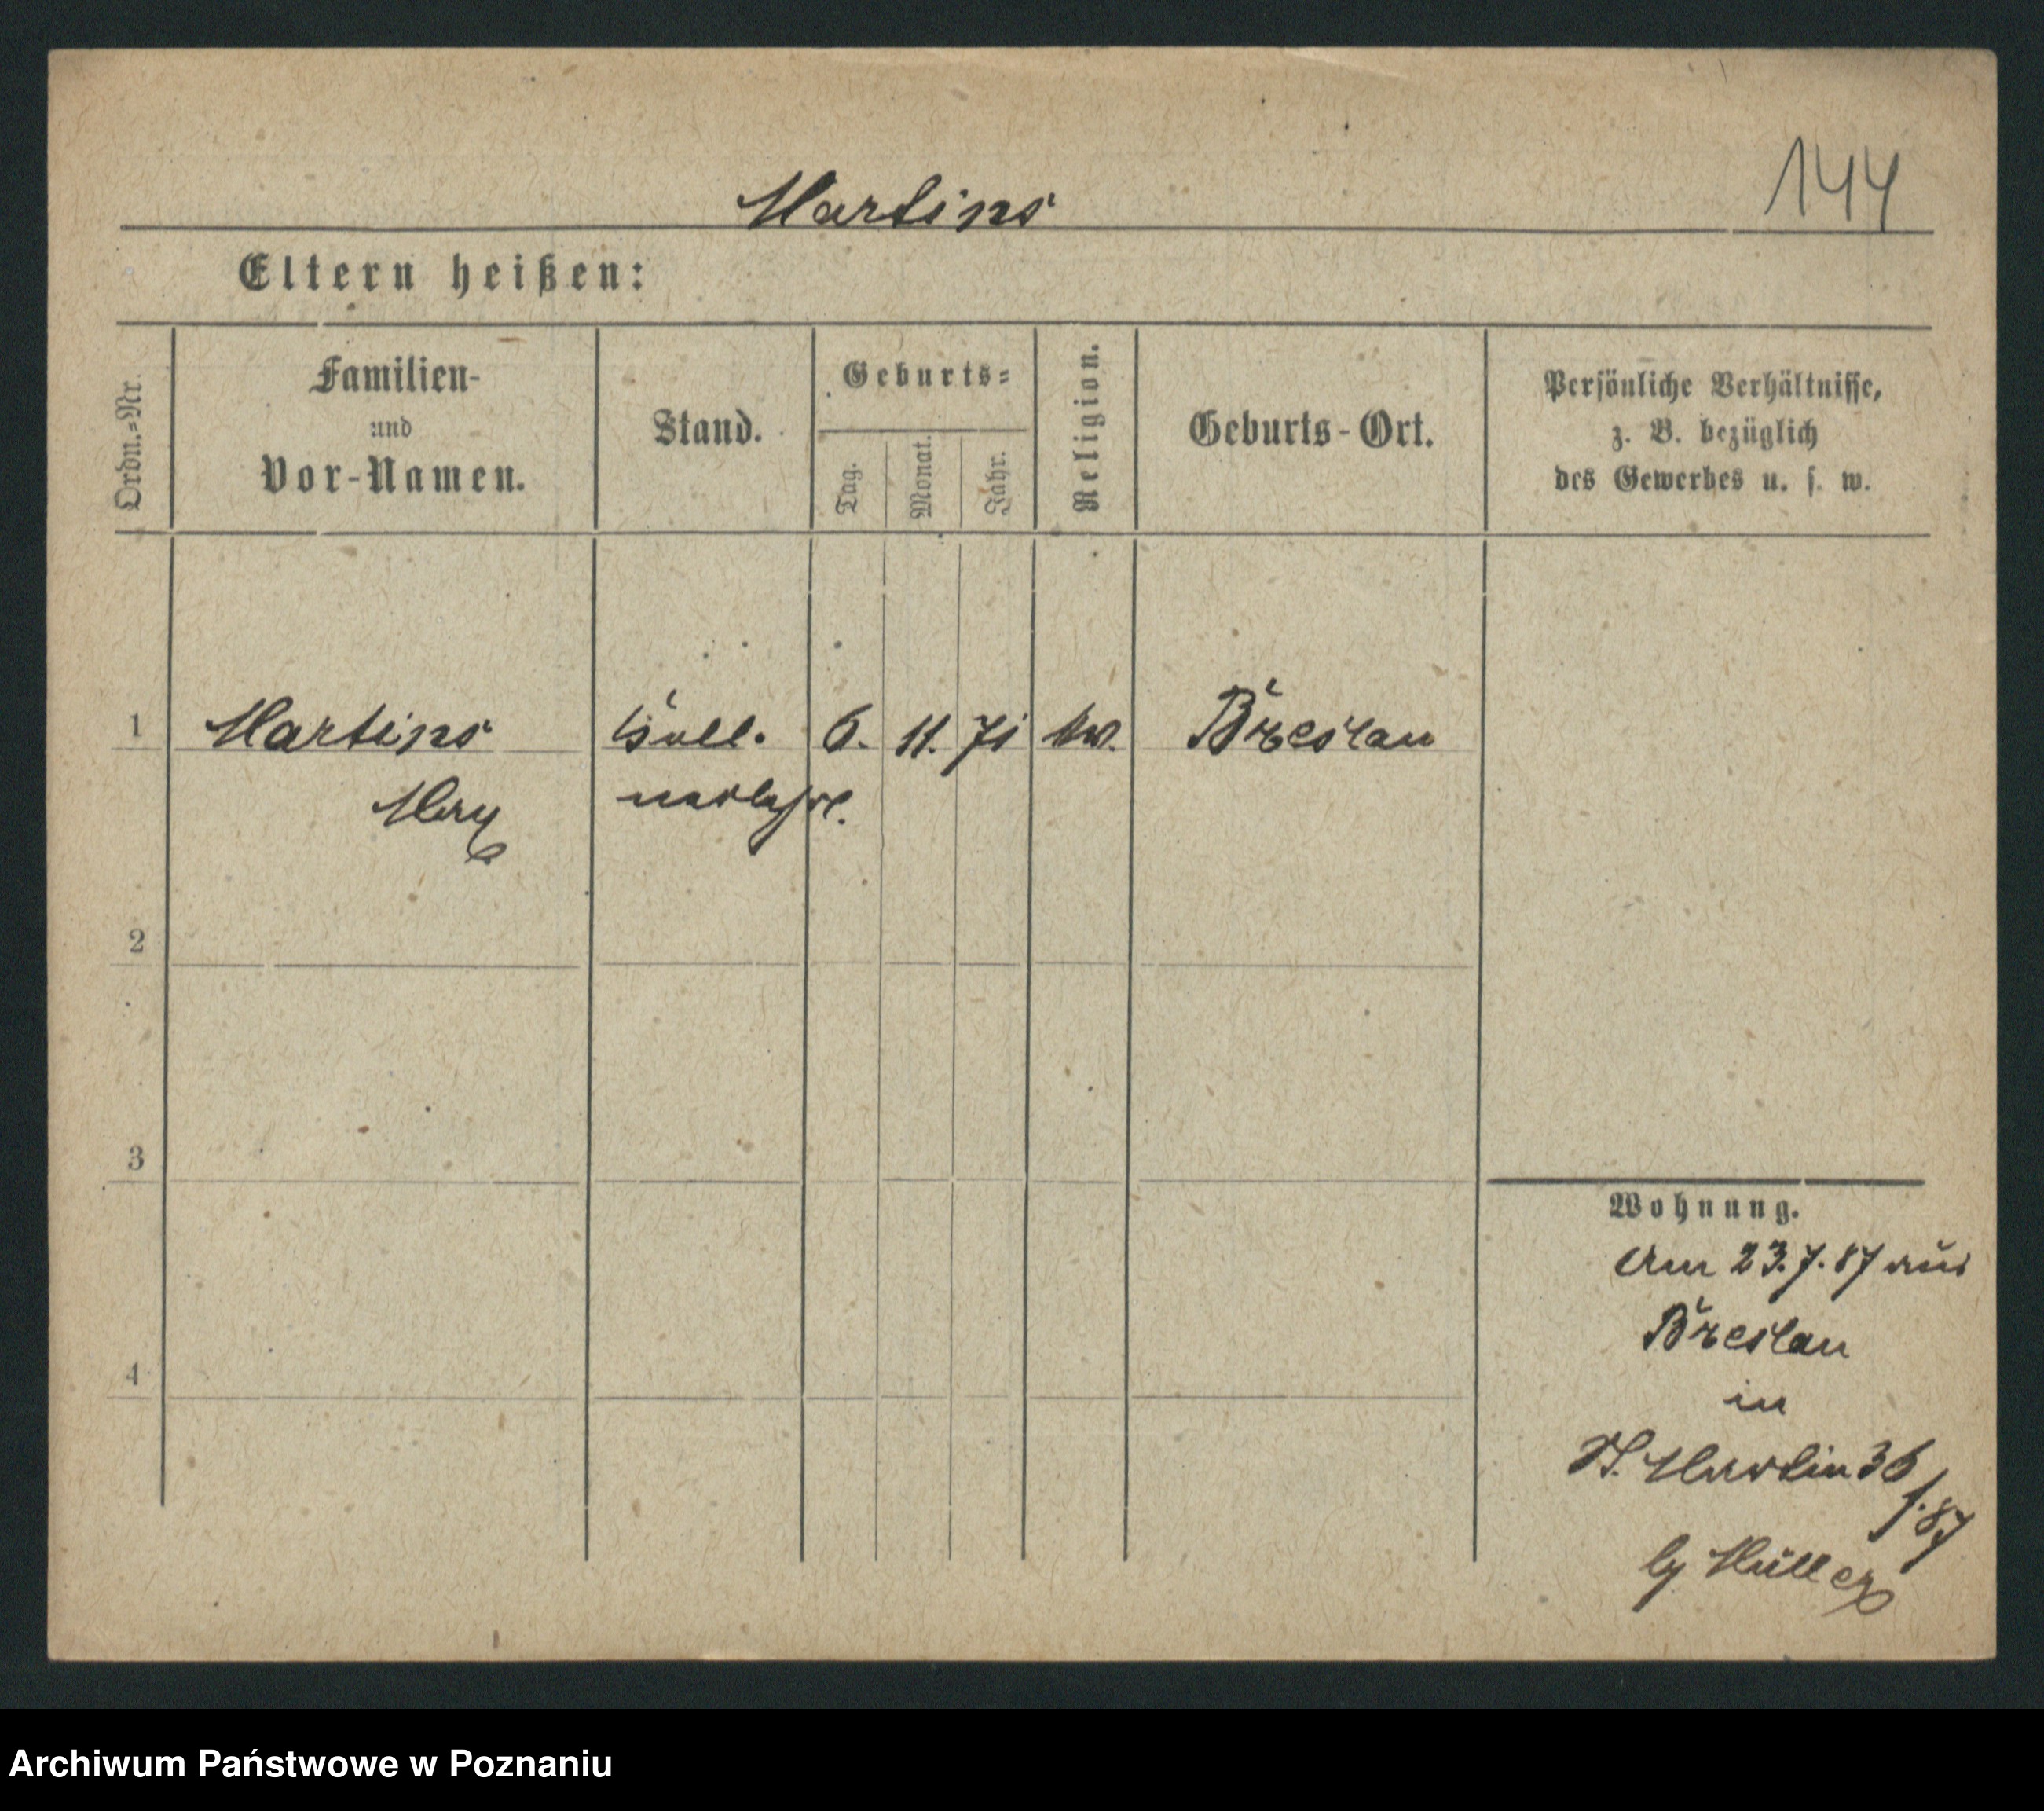 144
Martins
Eltern heißen:
Ordn.-Nr.
Familien-
und
Vor-Namen.
Stand.
Geburts-
Tag.
Monat.
Jahr.
Religion.
Geburts-Ort.
Persönliche Verhältnisse,
z. B. bezüglich
des Gewerbes u. s. w.
1 Martins 6. 11. 71 Breslau
2
3
4
Wohnung.
Am 23.7.87 aus
Breslau
in
St. Martin 36
f. 87
by Müller
Archiwum Państwowe w Poznaniu